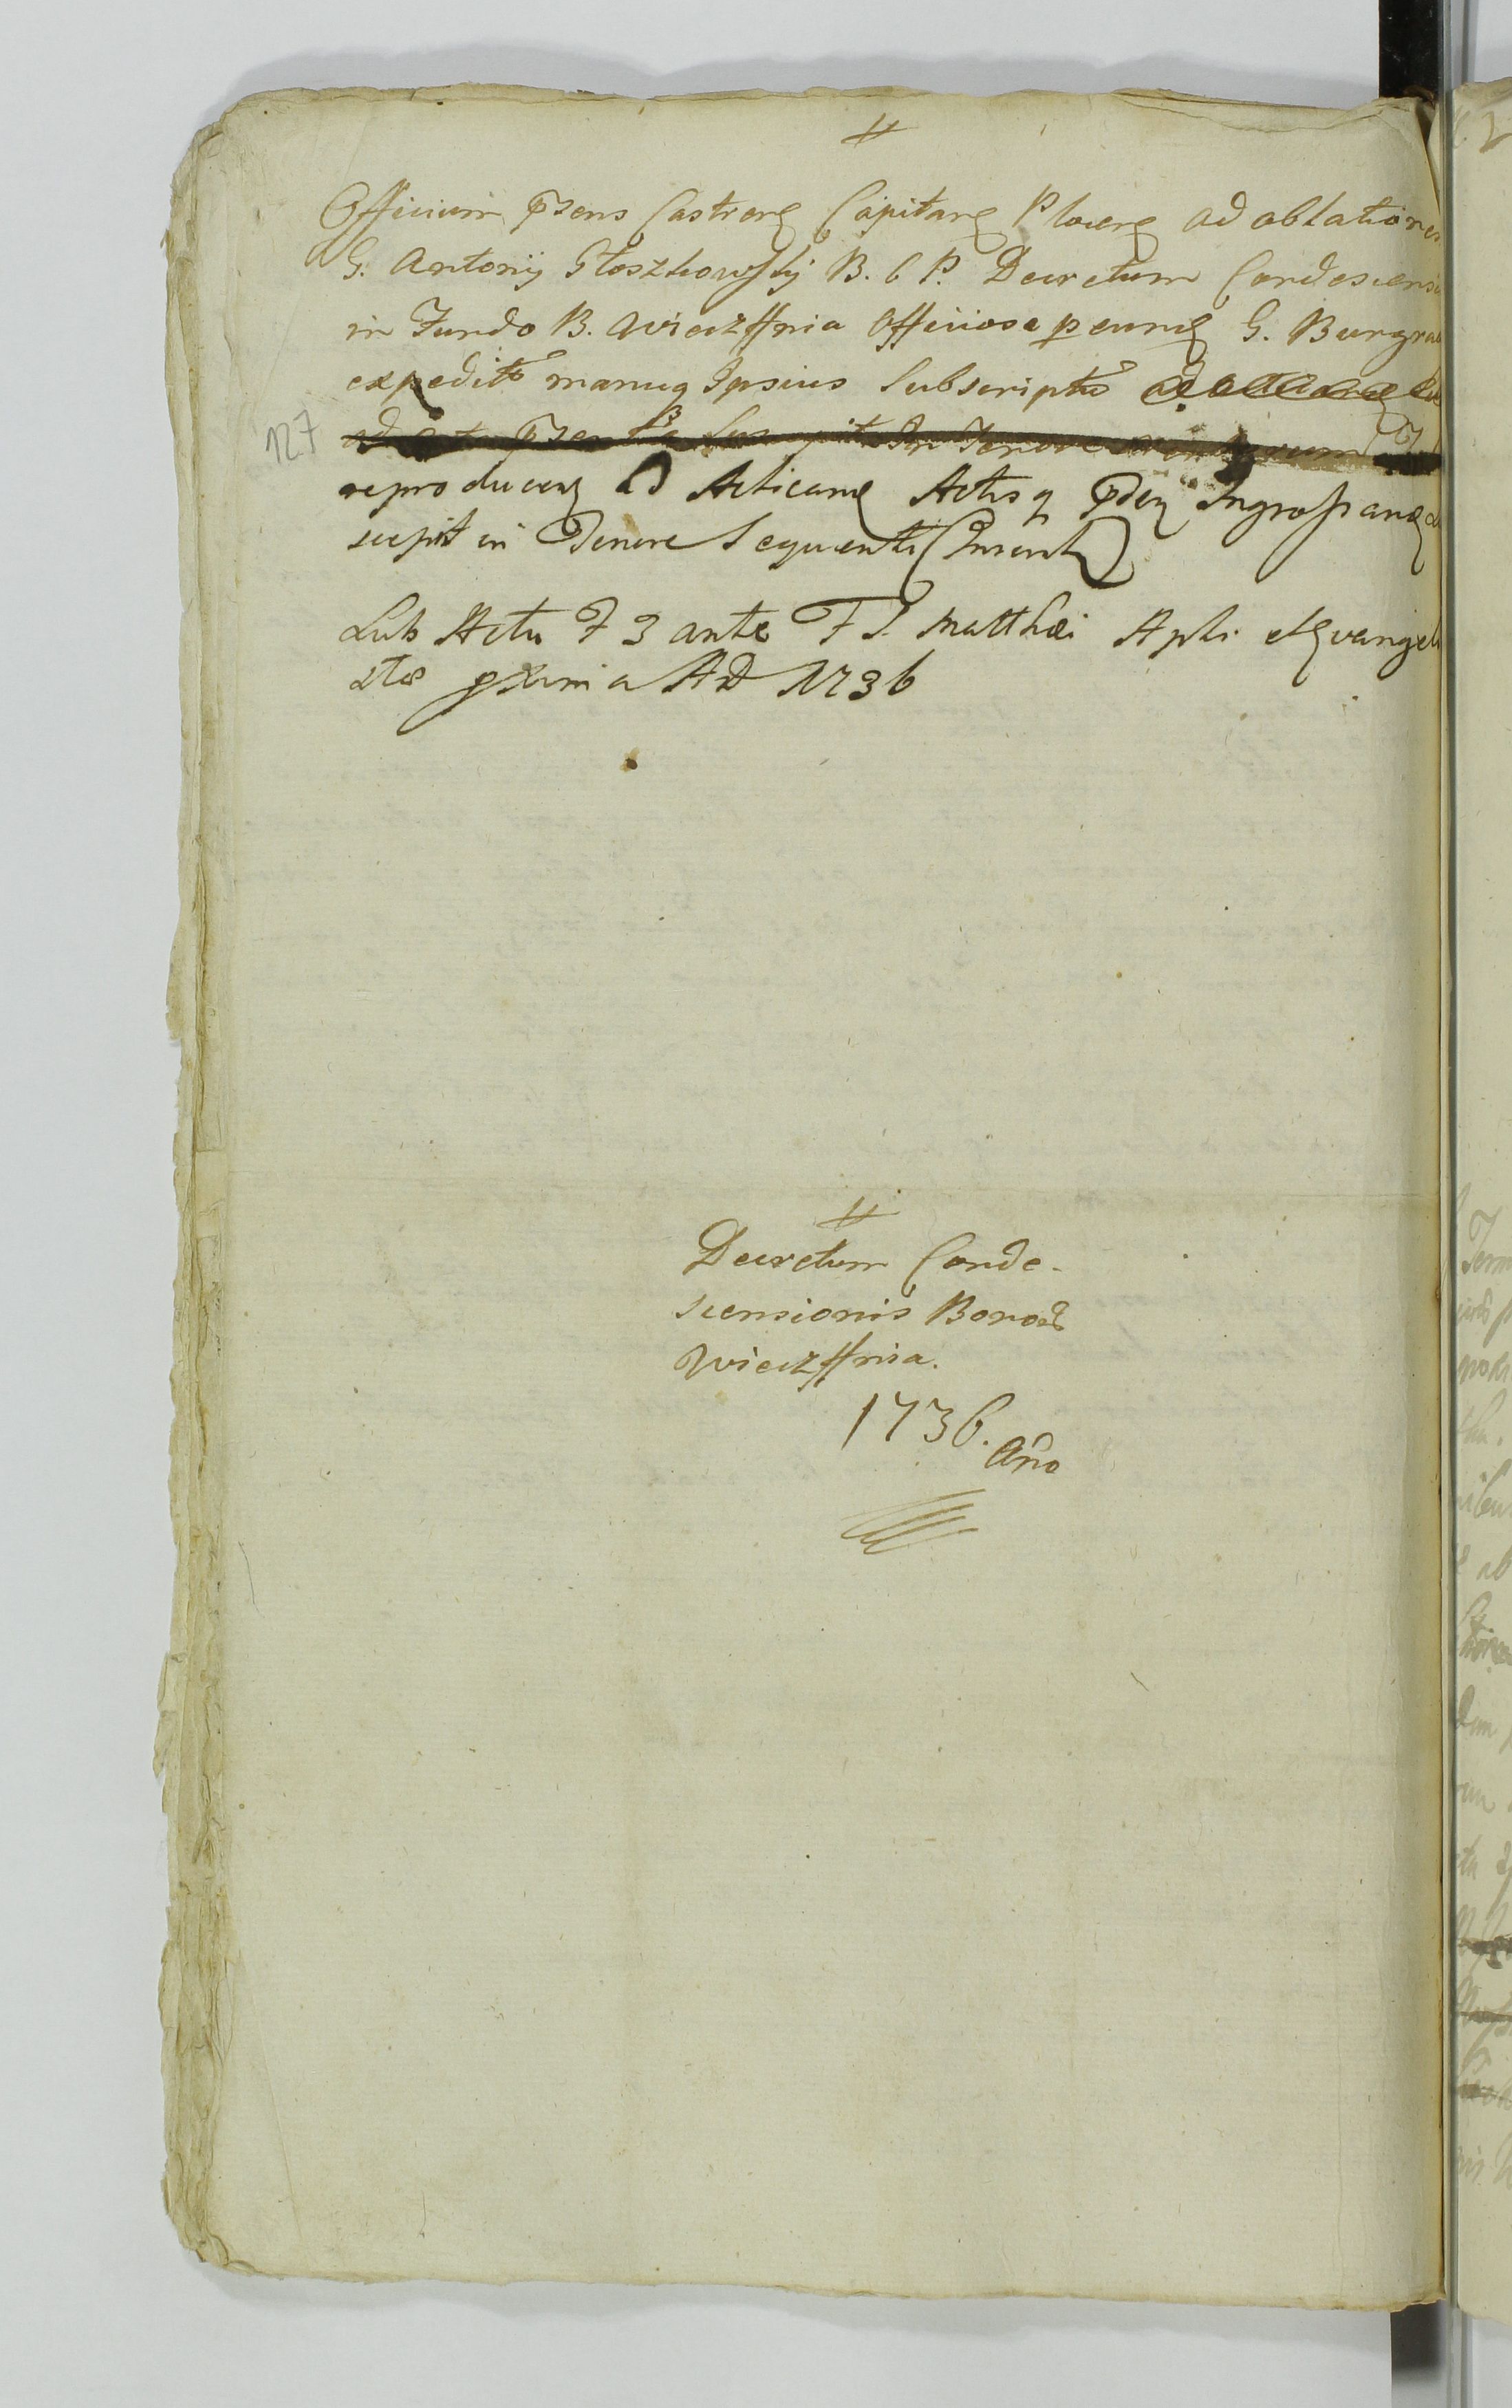 Officium p̄sens Castren Capitan Plocen ad oblationem
G. Antonij Głoszkowskij B. C P. Decretum Condescensi
in Fundo B. Wieczffnia Officiose p eund G. Burgra
expeditō manuq Ipsius Subscriptō
127
reproducen Ad Acticand Actisq p̄den Ingrossand
scepit in Tenore Sequenti (Inserat)
Sub Actu F 3 ante F S. Matthæi Apli et Evangeli
stæ pxima AD 1736
Decretum Conde-
scensionis Bonor
Wieczffnia.
1736. Año